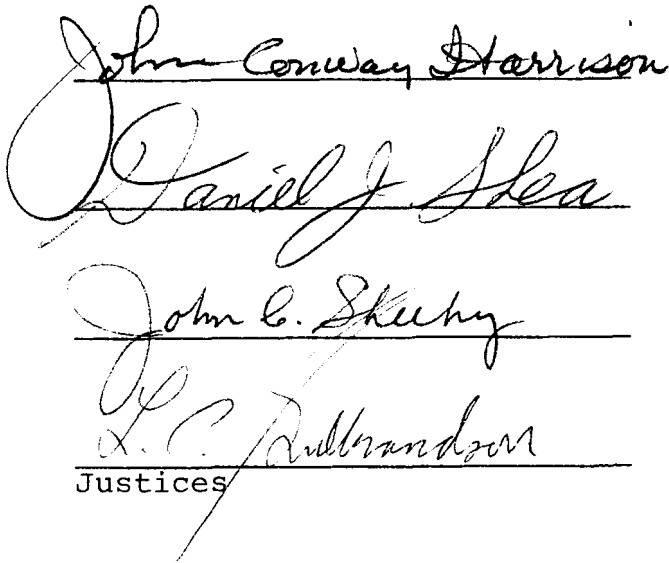 John Conway Harrison
Daniel J. Shea
John C. Sheehy
L. C. Gulbrandson
Justices